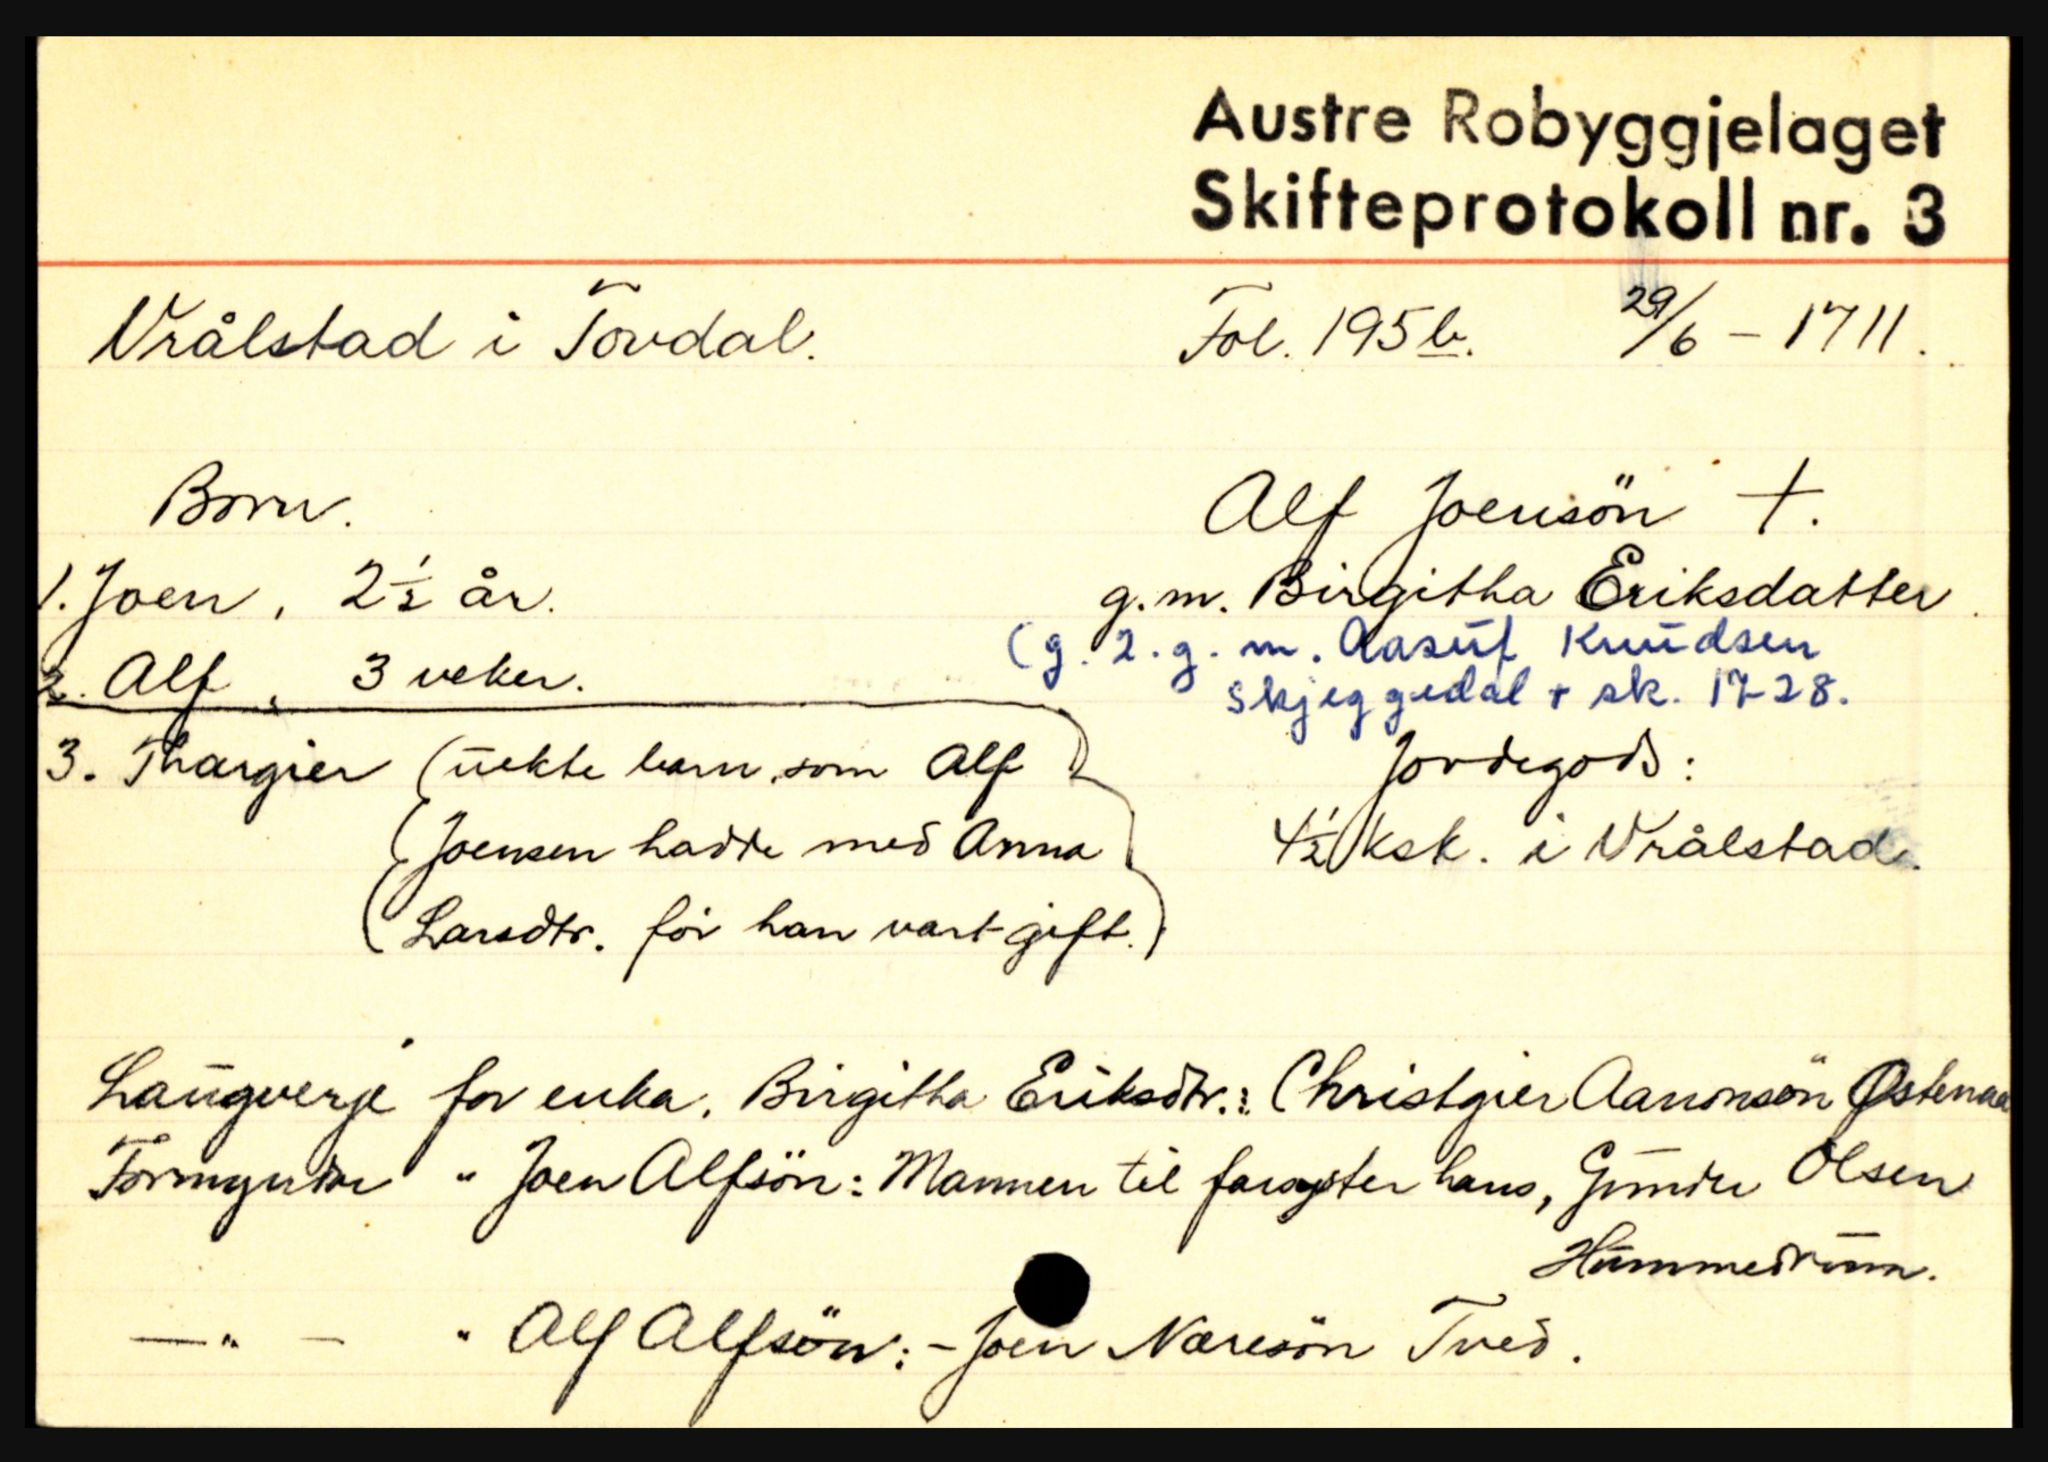 Austre Robyggjelaget
Skifteprotokoll nr. 3
Vrålstad i Tovdal. Fol. 195 b. 29/6 – 1711.
Born. Alf Joensön †.
1. Joen, 2½ år. g.m. Birgitha Eriksdatter
(g. 2. g. m. Aasuf Knudsen
2. Alf, 3 veker.
Skjeggedal + sk. 1728.
3. Thargier (uekte barn, som Alf Jordegods:
(Joensen hadde med Anna 4½ ksk. i Vrålstad.
(Larsdtr. för han vart gift.)
Laugverje for enka, Birgitha Eriksdtr.: Christgier Aanonsön Østenaa
Formyndar " Joen Alfsön: Mannen til farsyster hans, Gunder Olsen
Hummedrum.
— " — " Alf Alfsön: – Joen Næresön Tved.